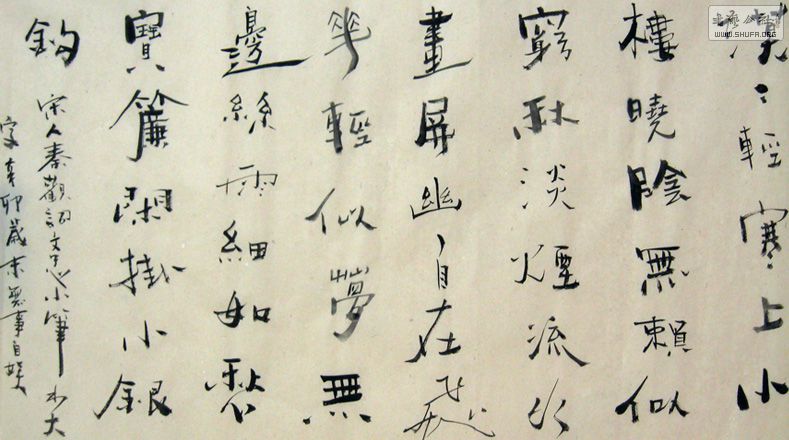 漠〻輕寒上小
樓曉陰無賴似
窮秋淡煙流水
畫屏幽〻自在飛
花輕似夢無
邊絲雨細如愁
寶簾閑掛小銀
鈎
宋人秦觀詞文志小筆水大
字辛卯歲末無事自娱
WWW.SHUFA.ORG